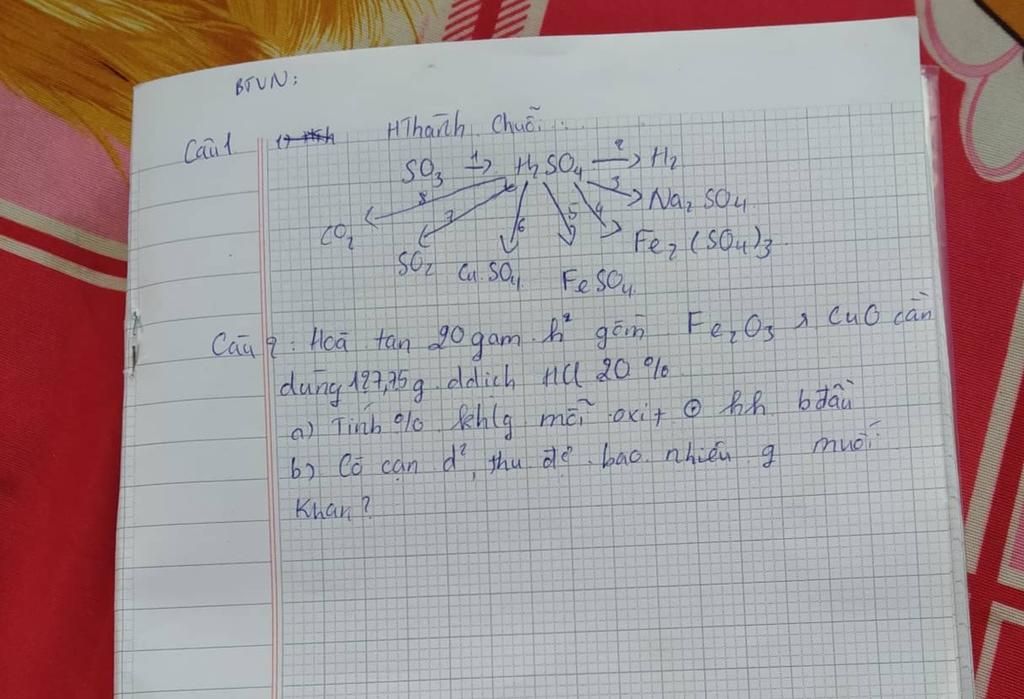 BTVN:
Câu 1 HThành Chuỗi:
SO3 1→ H2SO4 2→ H2
8 7 6 5 4 3 Na2SO4
CO2 SO2 CuSO4 FeSO4 Fe2(SO4)3
Câu 2: Hoà tan 20 gam h² gồm Fe2O3 & CuO cần
dùng 127,75 g ddịch HCl 20%
a) Tính % khlg mỗi oxit ⊕ hh bđầu
b) Cô cạn d², thu đc bao nhiêu g muối
Khan?